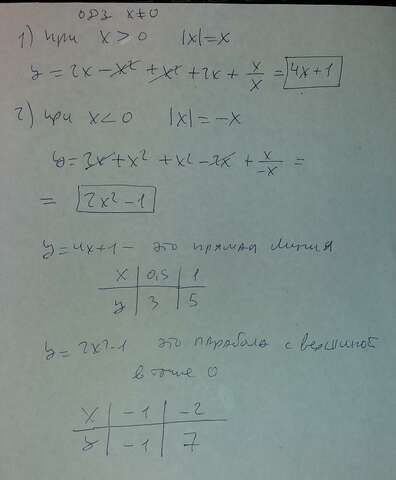 ОДЗ x≠0
1) при x>0 |x|=x
y = 2x - x² + x² + 2x + x/x = 4x+1
2) при x<0 |x| = -x
y = 2x + x² + x² - 2x + x/-x =
= 2x²-1
y = 4x+1 - это прямая линия
x | 0,5 | 1
y | 3 | 5
y = 2x²-1 это парабола с вершиной
в точке 0
x | -1 | -2
y | -1 | 7